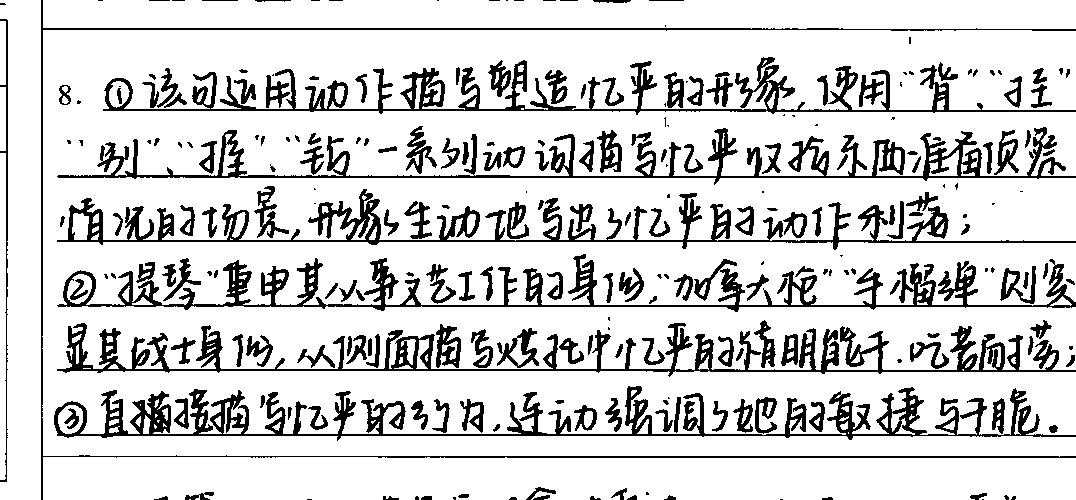 8. ①该句运用动作描写塑造忆严的形象,使用“背”、“挂”
“别”、“握”、“钻”一系列动词描写忆严收拾东西准备侦察
情况的场景,形象生动地写出了忆严的动作利落;
②“提琴”重申其从事文艺工作的身份,“加拿大枪”“手榴弹”则突
显其战士身份,从侧面描写烘托出忆严的精明能干.吃苦耐劳;
③直接描写忆严的行为,连动强调了她的敏捷与干脆.